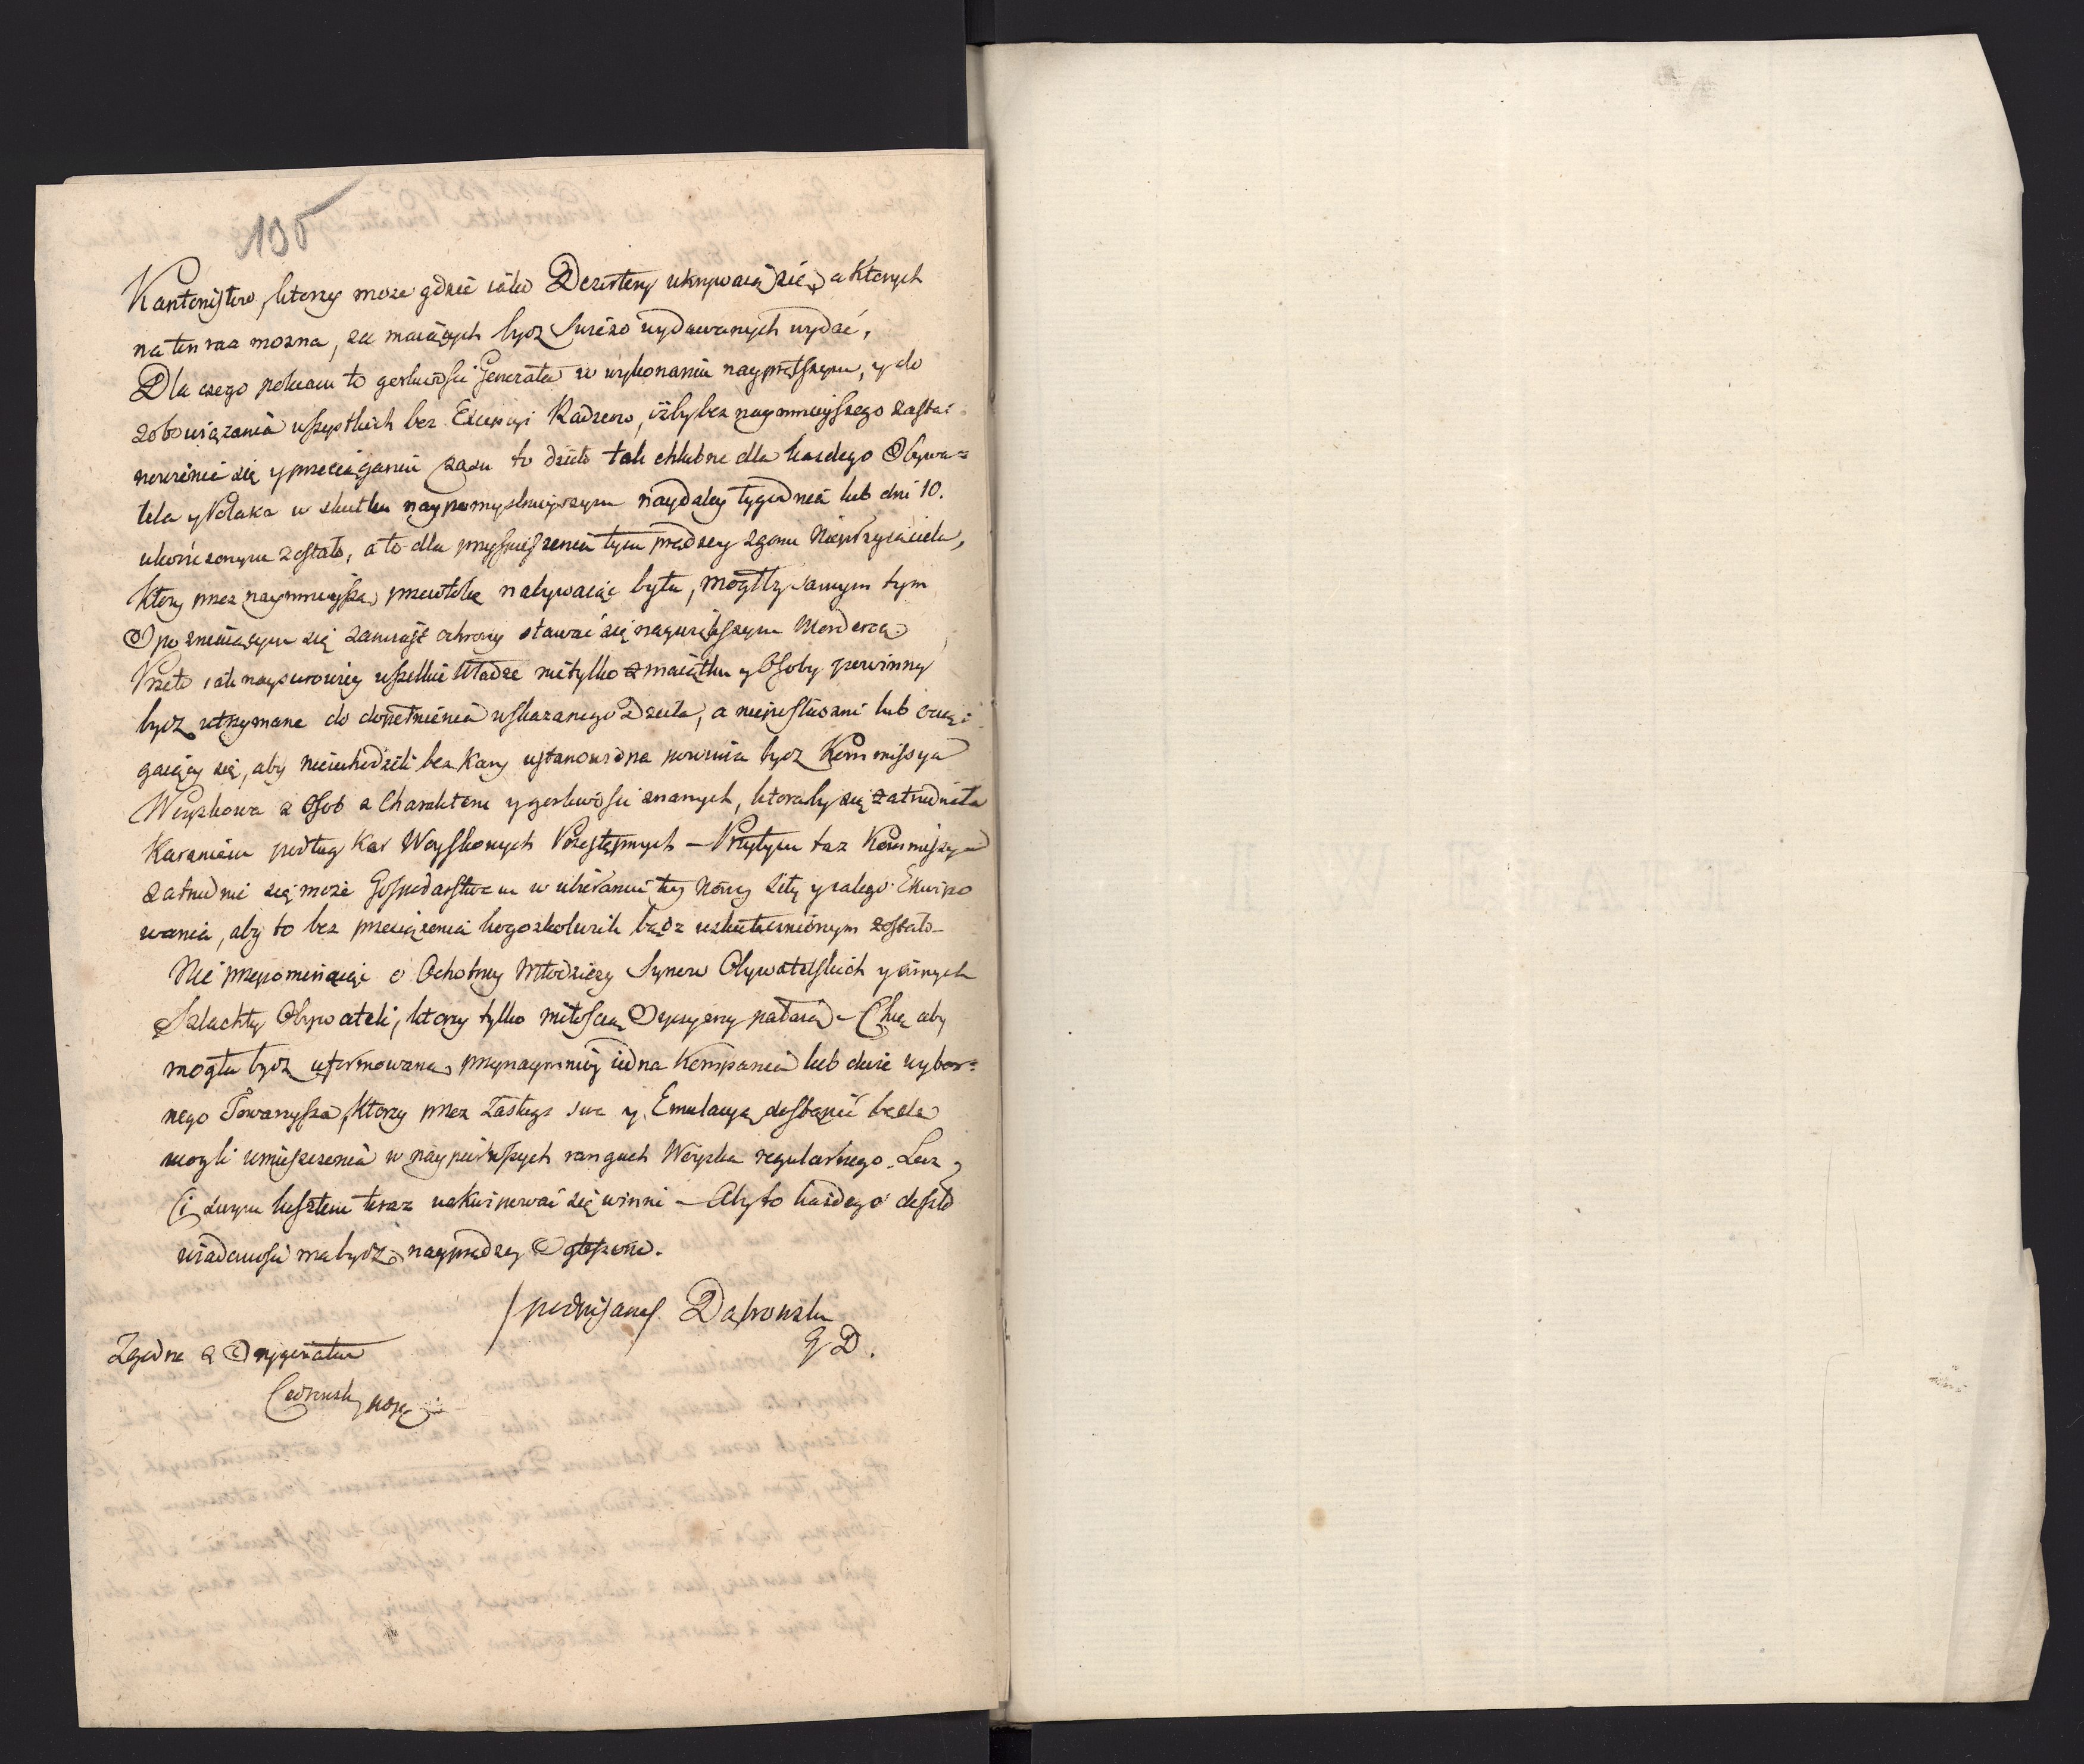 195
Kantonistow, ktorzy moze gdzie iako Dezertery ukrywaią się, a ktorych
na ten raz mozna, za maiących bydz swiezo wydawanych wydać,
Dla czego polecam to gorliwosci Generała w wykonaniu nayprętszym, y do
zobowiązania wszystkich bez Excepcyi Radzcow, izby bez naymnieyszego zasta-
nowienia się y przeciągania czasu to dzieło tak chlubne dla kazdego Obywa=
tela y Polaka w skutku naypomyslnieyszym naydaley tygodnia lub dni 10.
ukończonym zostało, a to dla przyspieszenia tym prędzey zgonu Nieprzyiaciela,
ktory przez naymnieyszą przewłokę nabywaiąc bytu, mogłby samym tym
Opozniaiącym się zamiast obrony stawać się naywiększym Mordercą.
Przeto iak naysurowiey wszelkie Władze nietylko z maiątku y Osoby powinny
bydz utrzymane do dopełnienia wskazanego Dzieła, a nieposłuszni lub ociąg-
gaiący się, aby nieuchodzili bez kary ustanowiona powinna bydz Kommissya
Woyskowa z Osob z Charakteru y gorliwosci znanych, ktoraby się zatrudniła
karaniem podług kar Woyskowych Przestępnych — Przytym taz Kommissya
zatrudnić się moze Gospodarstwem w ubieraniu tey Nowey siły y całego Ekwipo
wania, aby to bez przeciążenia kogozkolwiek bądz uskutecznionym zostało
Nie przepominaiąc o Ochotney Młodziezy Synow Obywatelskich y innych
Szlachty Obywateli, ktorzy tylko miłoscią Oyczyzny pałaią — Chcę aby
mogła bydz uformowana przynaymniey iedna Kompania lub dwie wybor=
nego Towarzysza, ktorzy przez Zasługi swe y Emulacyą dostąpić będą
mogli umieszczenia w naypierwszych rangach Woyska regularnego. Lecz
Ci swym kosztem teraz uekwipować się winni — Aby to kazdego doszło
wiadomosci ma bydz nayprędzey Ogłoszone.
/podpisano/ Dąbrowski
G D.
Zgodno z Oryginałem